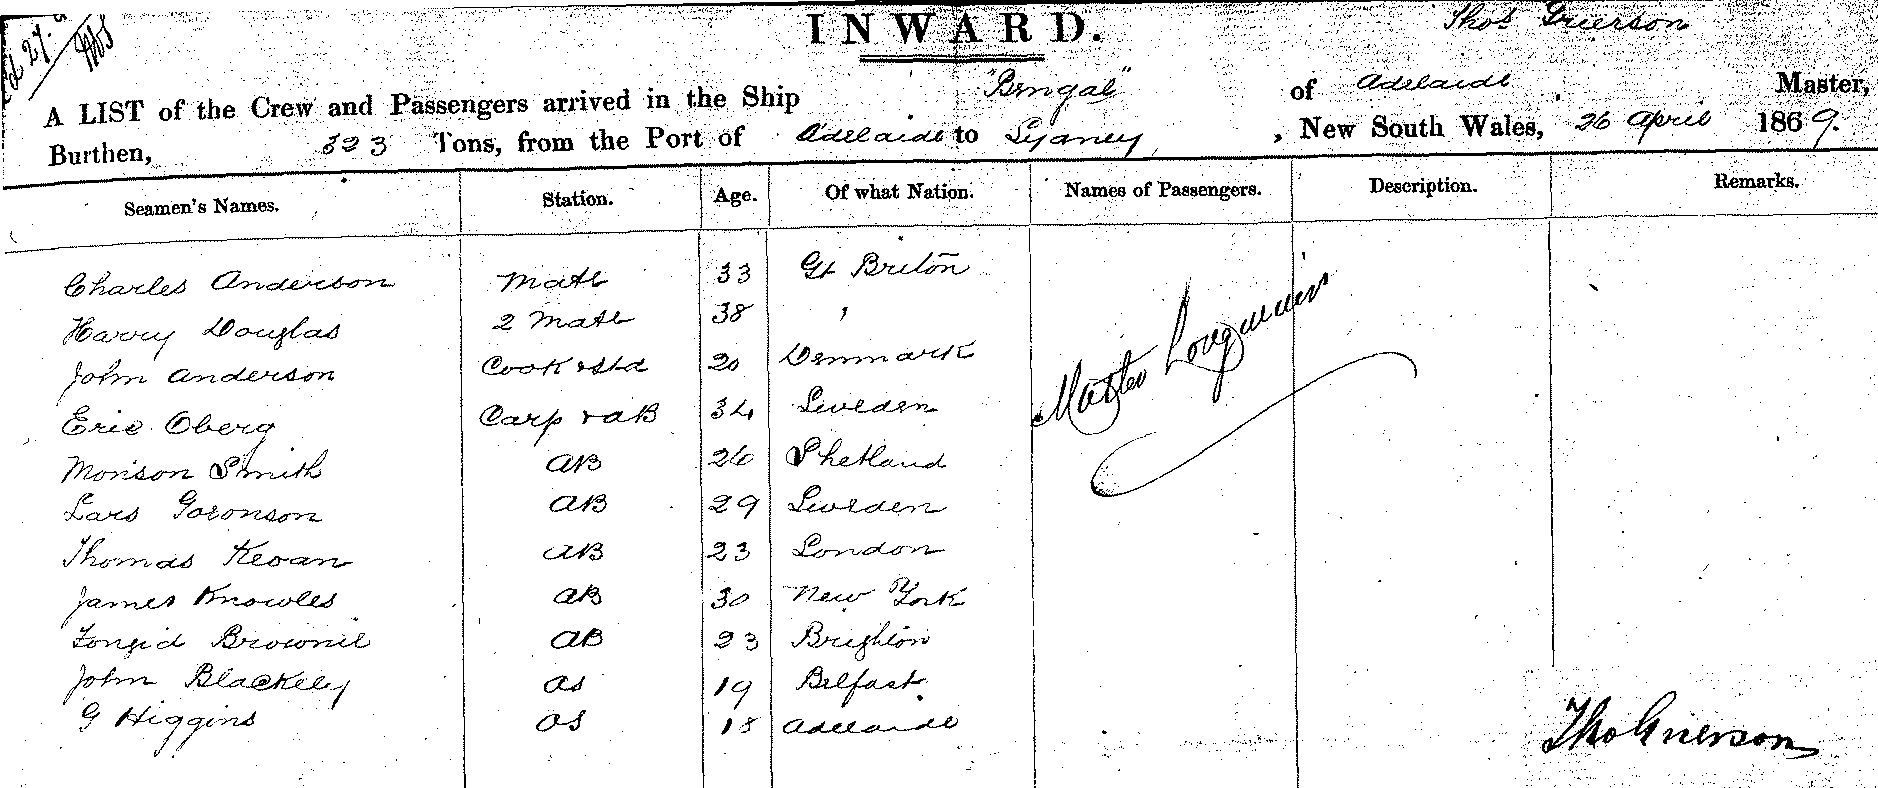 INWARD.
Thos Grierson
A LIST of the Crew and Passengers arrived in the Ship "Bengal" of Adelaide Master,
Burthen, 323 Tons, from the Port of Adelaide to Sydney, New South Wales, 26 April 1869.
Seamen's Names. Station. Age. Of what Nation. Names of Passengers. Description. Remarks.
Charles Anderson Mate 33 Gt Briton
Harry Douglas 2 Mate 38 "
John Anderson Cook & Std 20 Denmark
Eric Oberg Carp & AB 34 Sweden
Morison Smith AB 26 Shetland
Lars Goronson AB 29 Sweden
Thomas Keoan AB 23 London
James Knowles AB 30 New York
AB 23 Brighton
John Blackely OS 19 Belfast
G Higgins OS 18 Adelaide
Tho Grierson